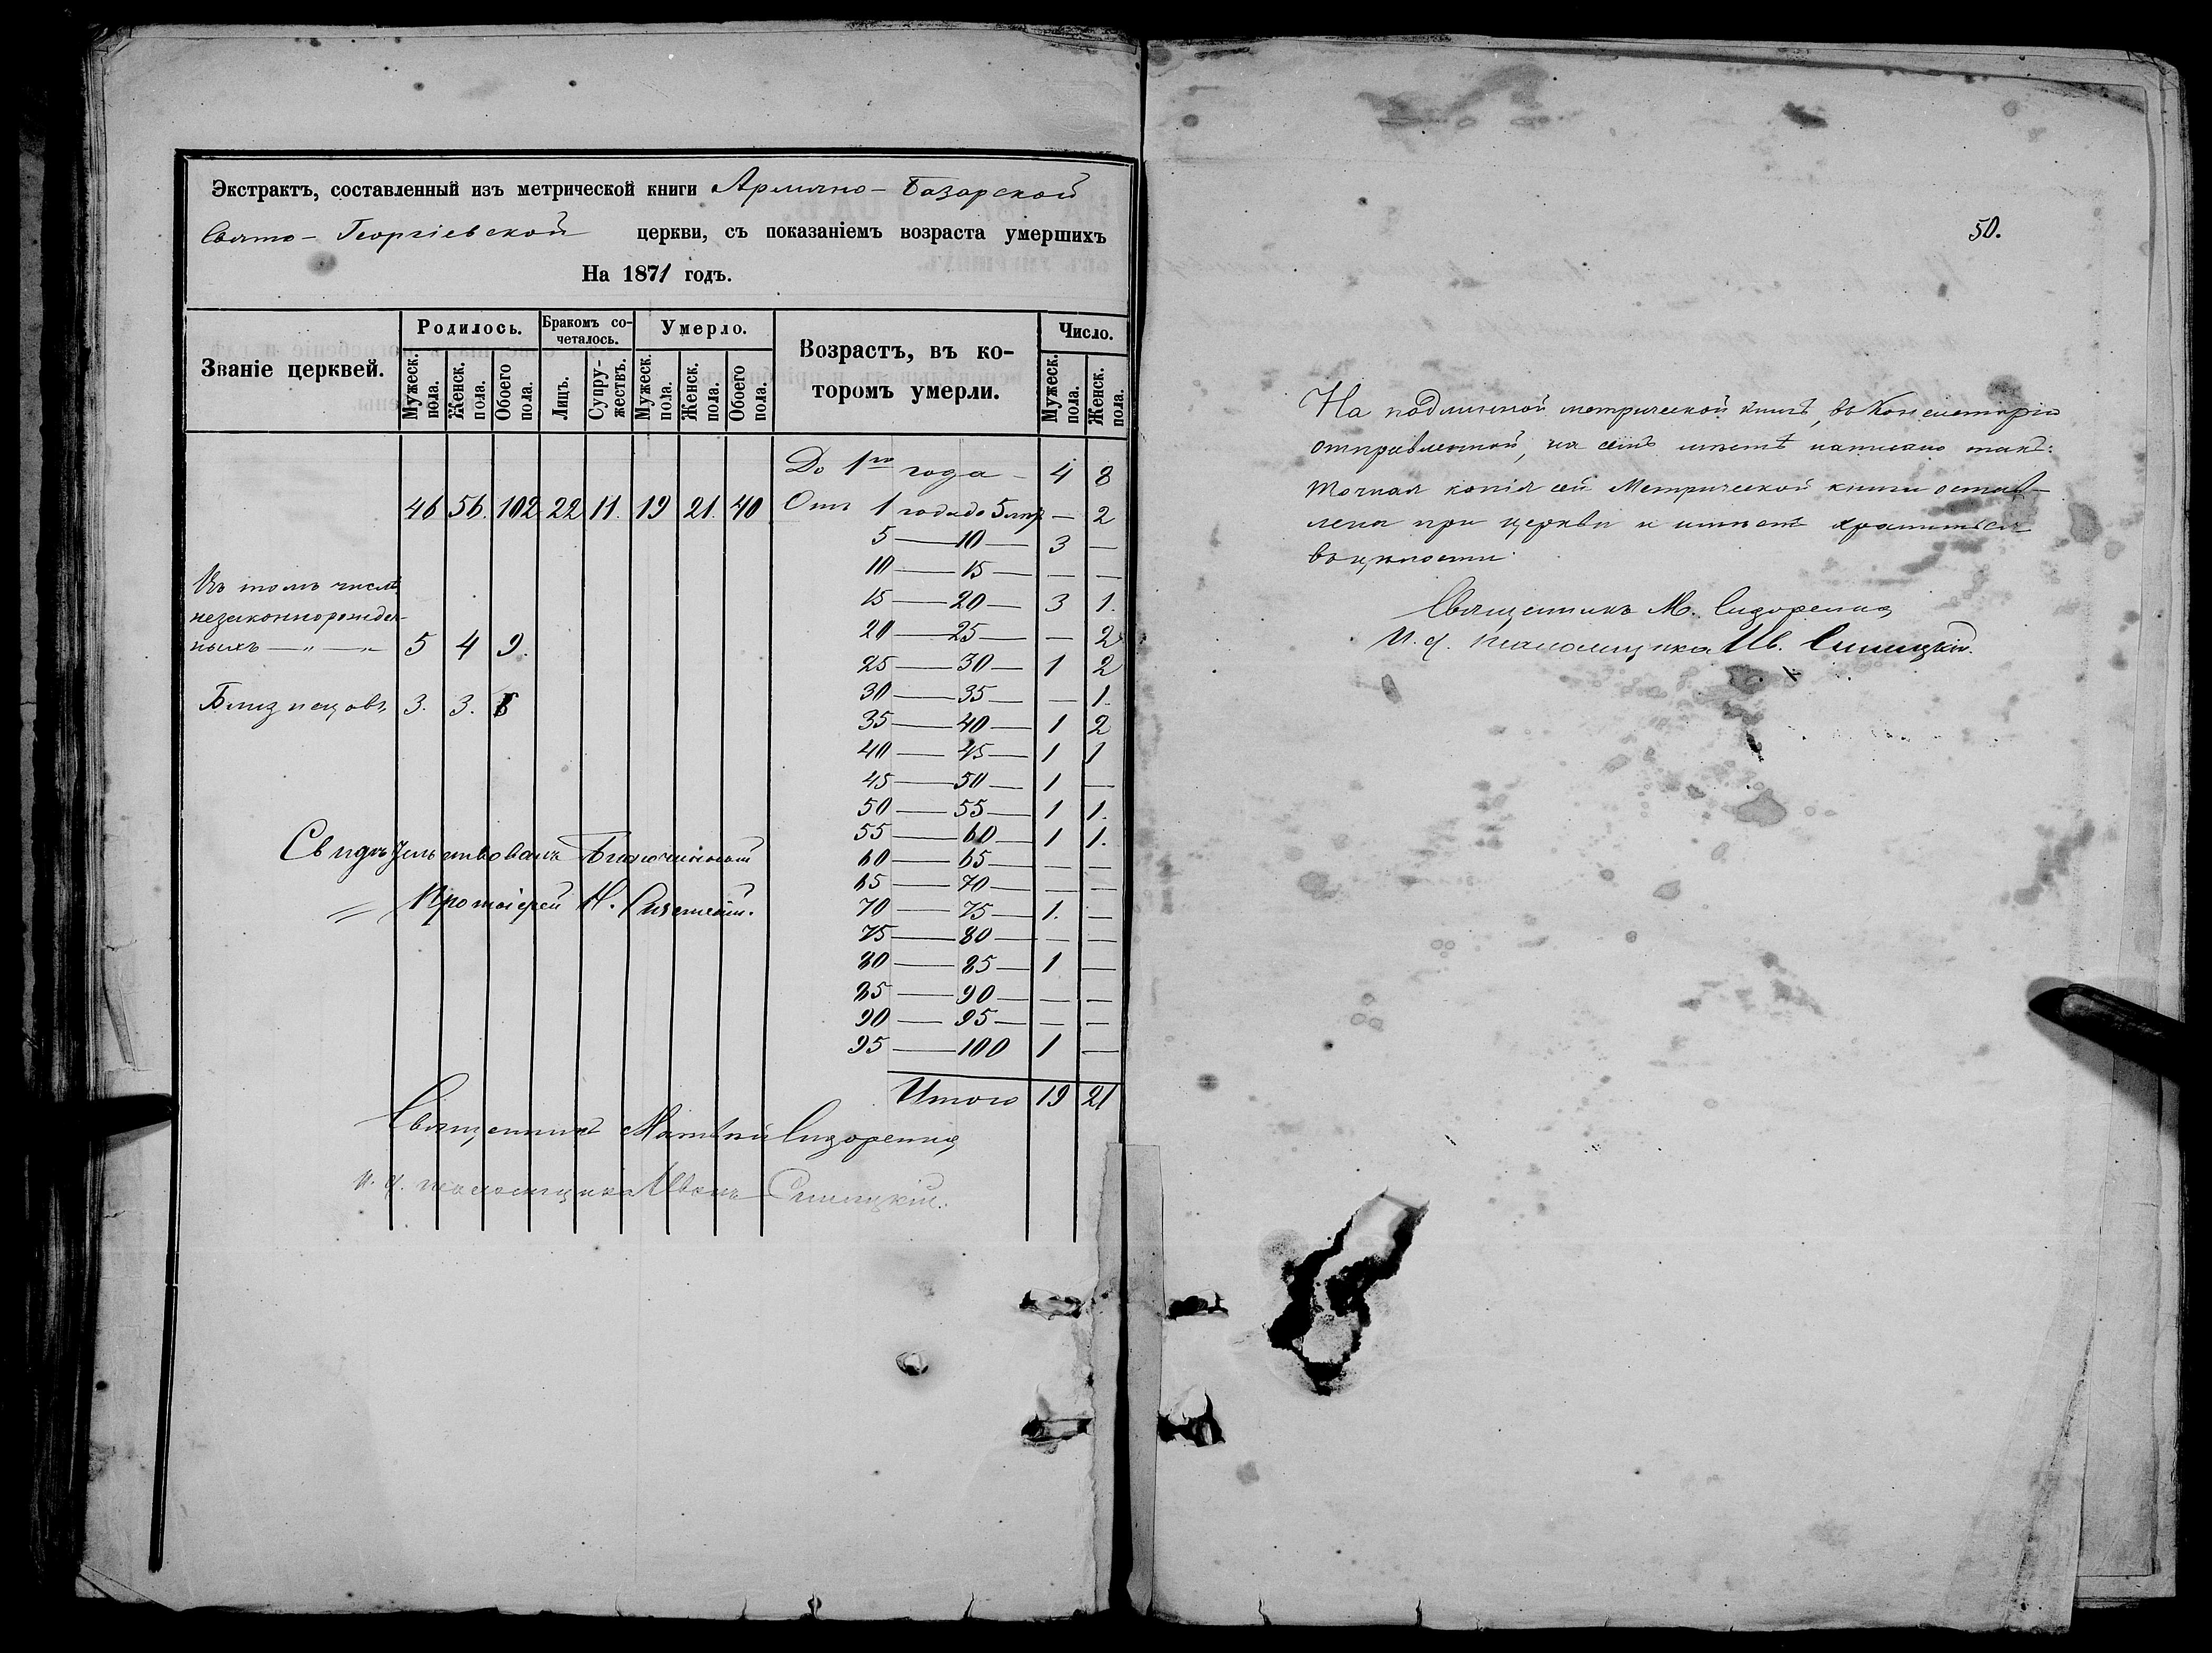 Экстрактъ, составленный изъ метрической книги Армяно-Базарской
Свято-Георгіевской церкви, съ показаніемъ возраста умершихъ
На 1871 годъ.
Званіе церквей.
Родилось.
Бракомъ сочеталось.
Умерло.
Возрастъ, въ которомъ умерли.
Число.
Мужеск. пола.
Женск. пола.
Обоего пола.
Лицъ.
Супружествъ.
Мужеск. пола.
Женск. пола.
Обоего пола.
Мужеск. пола.
Женск. пола.
46 56. 102 22 11. 19 21. 40
До 1го года — 4 8
Отъ 1 года до 5 лѣтъ — 2
5 — 10 — 3 —
10 — 15 — — —
15 — 20 — 3 1.
20 — 25 — — 2
25 — 30 — 1 2
30 — 35 — — 1.
35 — 40 — 1 2
40 — 45 — 1 1
45 — 50 — 1 —
50 — 55 — 1 1.
55 — 60 — 1 1.
60 — 65 — — —
65 — 70 — — —
70 — 75 — 1. —
75 — 80 — — —
80 — 85 — 1 —
85 — 90 — — —
90 — 95 — — —
95 — 100 1 —
Итого 19 21
Въ томъ числѣ
незаконнорожден-
ныхъ — „ — „ 5 4 9.
Близнецовъ 3. 3. 6
Свидѣтельствовалъ Благочинный
Протоіерей
Священникъ Матвѣй Сидоренко
И. д. псаломщика Иванъ
50.
На подлинной метрической книгѣ, въ Консисторію
отправленной, на семъ мѣстѣ написано такъ:
Точная копія сей Метрической книги остав-
лена при церкви и имѣетъ храниться
въ цѣлости.
Священникъ М. Сидоренко
И. д. псаломщика Ив.